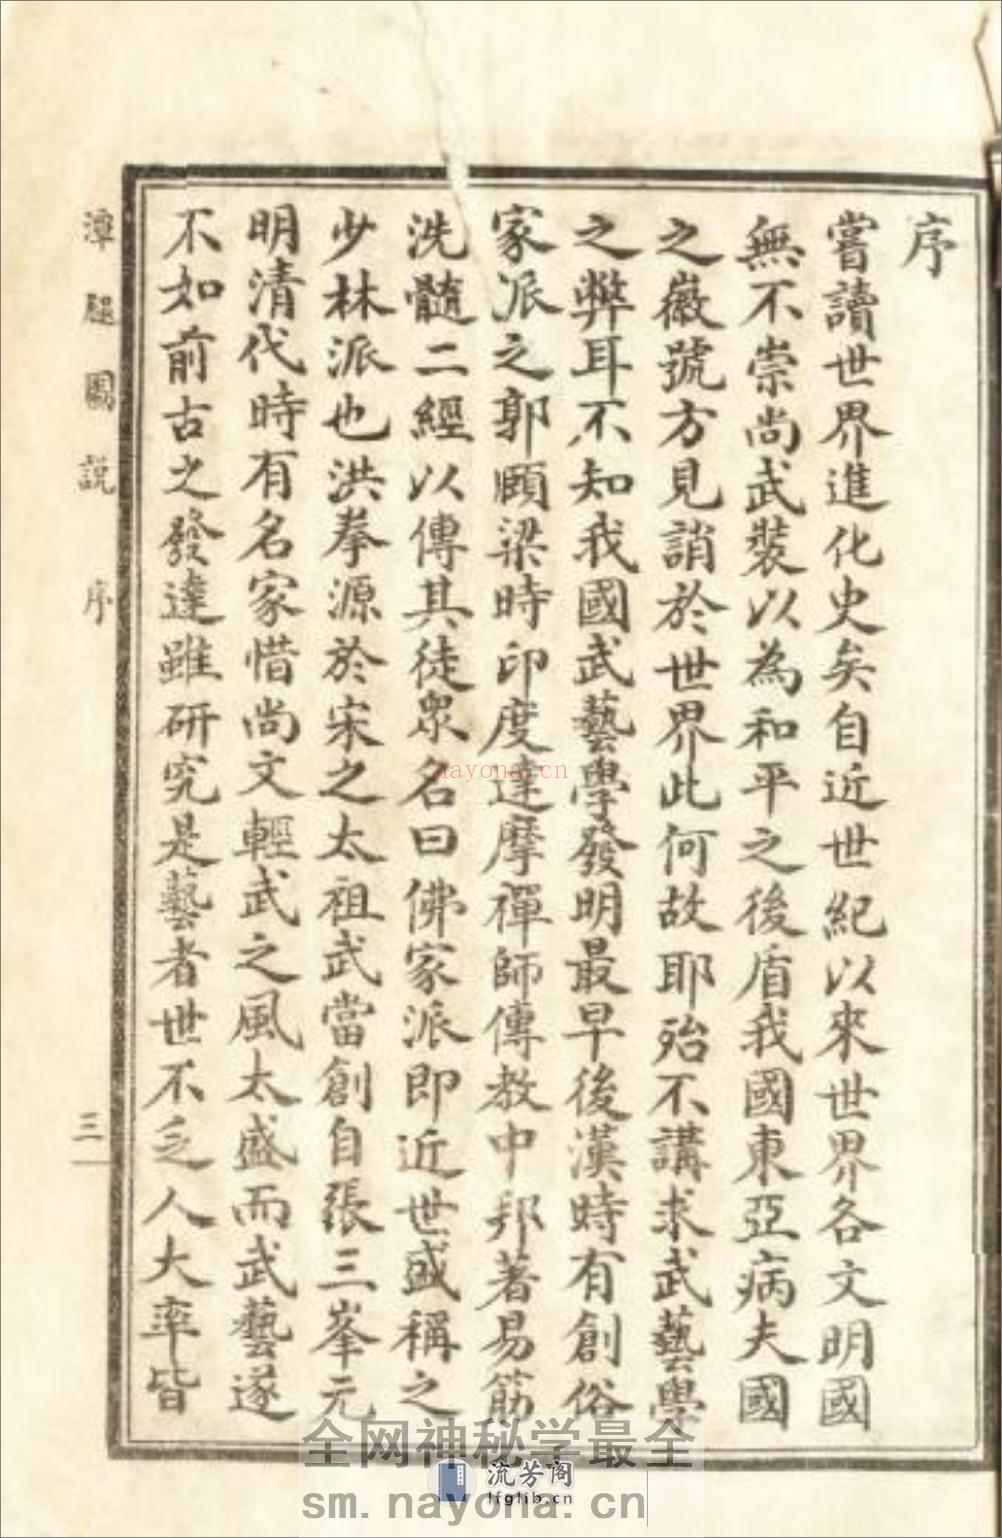 序
嘗讀世界進化史矣自近世紀以來世界各文明國
無不崇尚武裝以為和平之後盾我國東亞病夫國
之徽號方見誚於世界此何故耶殆不講求武藝學
之弊耳不知我國武藝學發明最早後漢時有創俗
家派之郭頤梁時印度達摩禪師傳教中邦著易筋
洗髓二經以傳其徒眾名曰佛家派即近世盛稱之
少林派也洪拳源於宋之太祖武當創自張三峯元
明清代時有名家惜尚文輕武之風太盛而武藝遂
不如前古之發達雖研究是藝者世不乏人大率皆
潭腿圖說 序
三
nayona.cn
全网神秘学最全
流芳阁
lfglib.cn
sm.nayona.cn